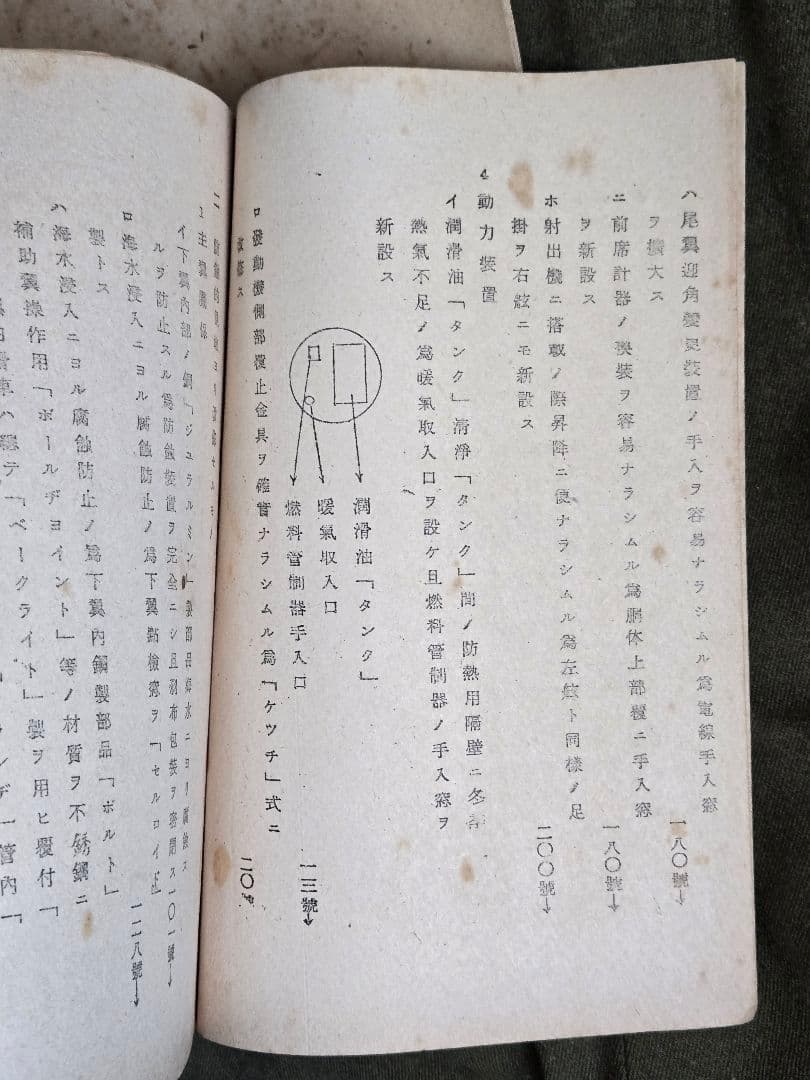 ハ尾翼迎角變更装置ノ手入ヲ容易ナラシムル爲電線手入窓
ヲ擴大ス 一八〇號→
ニ前席計器ノ換装ヲ容易ナラシムル爲胴体上部覆ニ手入窓
ヲ新設ス 一八〇號→
ホ射出機ニ搭載ノ際昇降ニ便ナラシムル爲左舷ト同様ノ足
掛ヲ右舷ニモ新設ス 二〇〇號→
4動力装置
イ潤滑油「タンク」清淨「タンク」間ノ防熱用隔壁ニ冬季
熱氣不足ノ爲暖氣取入口ヲ設ケ且燃料管制器ノ手入窓ヲ
新設ス
潤滑油「タンク」
暖氣取入口
燃料管制器手入口
一三號→
ロ發動機側部覆止金具ヲ確實ナラシムル爲「ケツチ」式ニ
改修ス 二〇
二
1主翼關係
イ下翼内部ノ鋼「ジユラルミン」製部品海水ニヨリ腐蝕ス
ルヲ防止スル爲防蝕装置ヲ完全ニシ且羽布包装ヲ密閉ス 一〇一號→
ロ海水浸入ニヨル腐蝕防止ノ爲下翼點檢窓ヲ「セルロイド」
製トス 一一八號→
ハ海水浸入ニヨル腐蝕防止ノ爲下翼内鋼製部品「ボルト」
補助翼操作用「ボールヂヨイント」等ノ材質ヲ不銹鋼ニ
滑車ハ總テ「ベークライト」製ヲ用ヒ覆付「
管内「